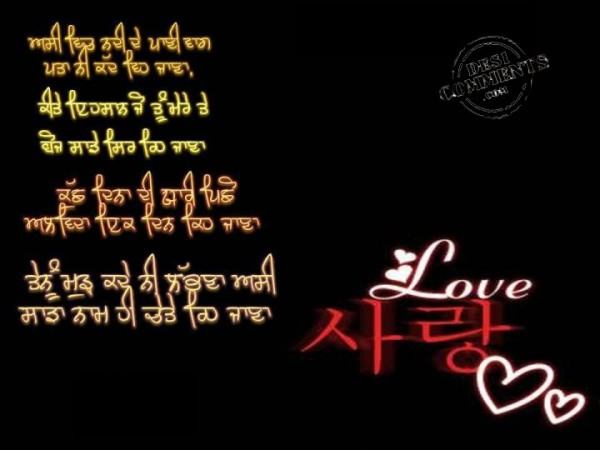 ਅਸੀ ਵਿਚ ਨਦੀ ਦੇ ਪਾਣੀ ਵਾਗ
ਪਤਾ ਨੀ ਕੱਦ ਵਹਿ ਜਾਣਾ,
ਕੀਤੇ ਇਹਸਾਨ ਜੋ ਤੂੰ ਮੇਰੇ ਤੇ
ਬੋਜ ਸਾਡੇ ਸਿਰ ਰਹਿ ਜਾਣਾ
ਕੁੱਛ ਦਿਨਾ ਦੀ ਯਾਰੀ ਪਿਛੋ
ਅਲਵਿਦਾ ਇਕ ਦਿਨ ਕਹਿ ਜਾਣਾ
ਤੇਨੂੰ ਮੁੜ ਕਦੇ ਨੀ ਲੱਭਣਾ ਅਸੀ
ਸਾਡਾ ਨਾਮ ਹੀ ਚੇਤੇ ਰਹਿ ਜਾਣਾ
DESI
COMMENTS
.COM
Love
사랑